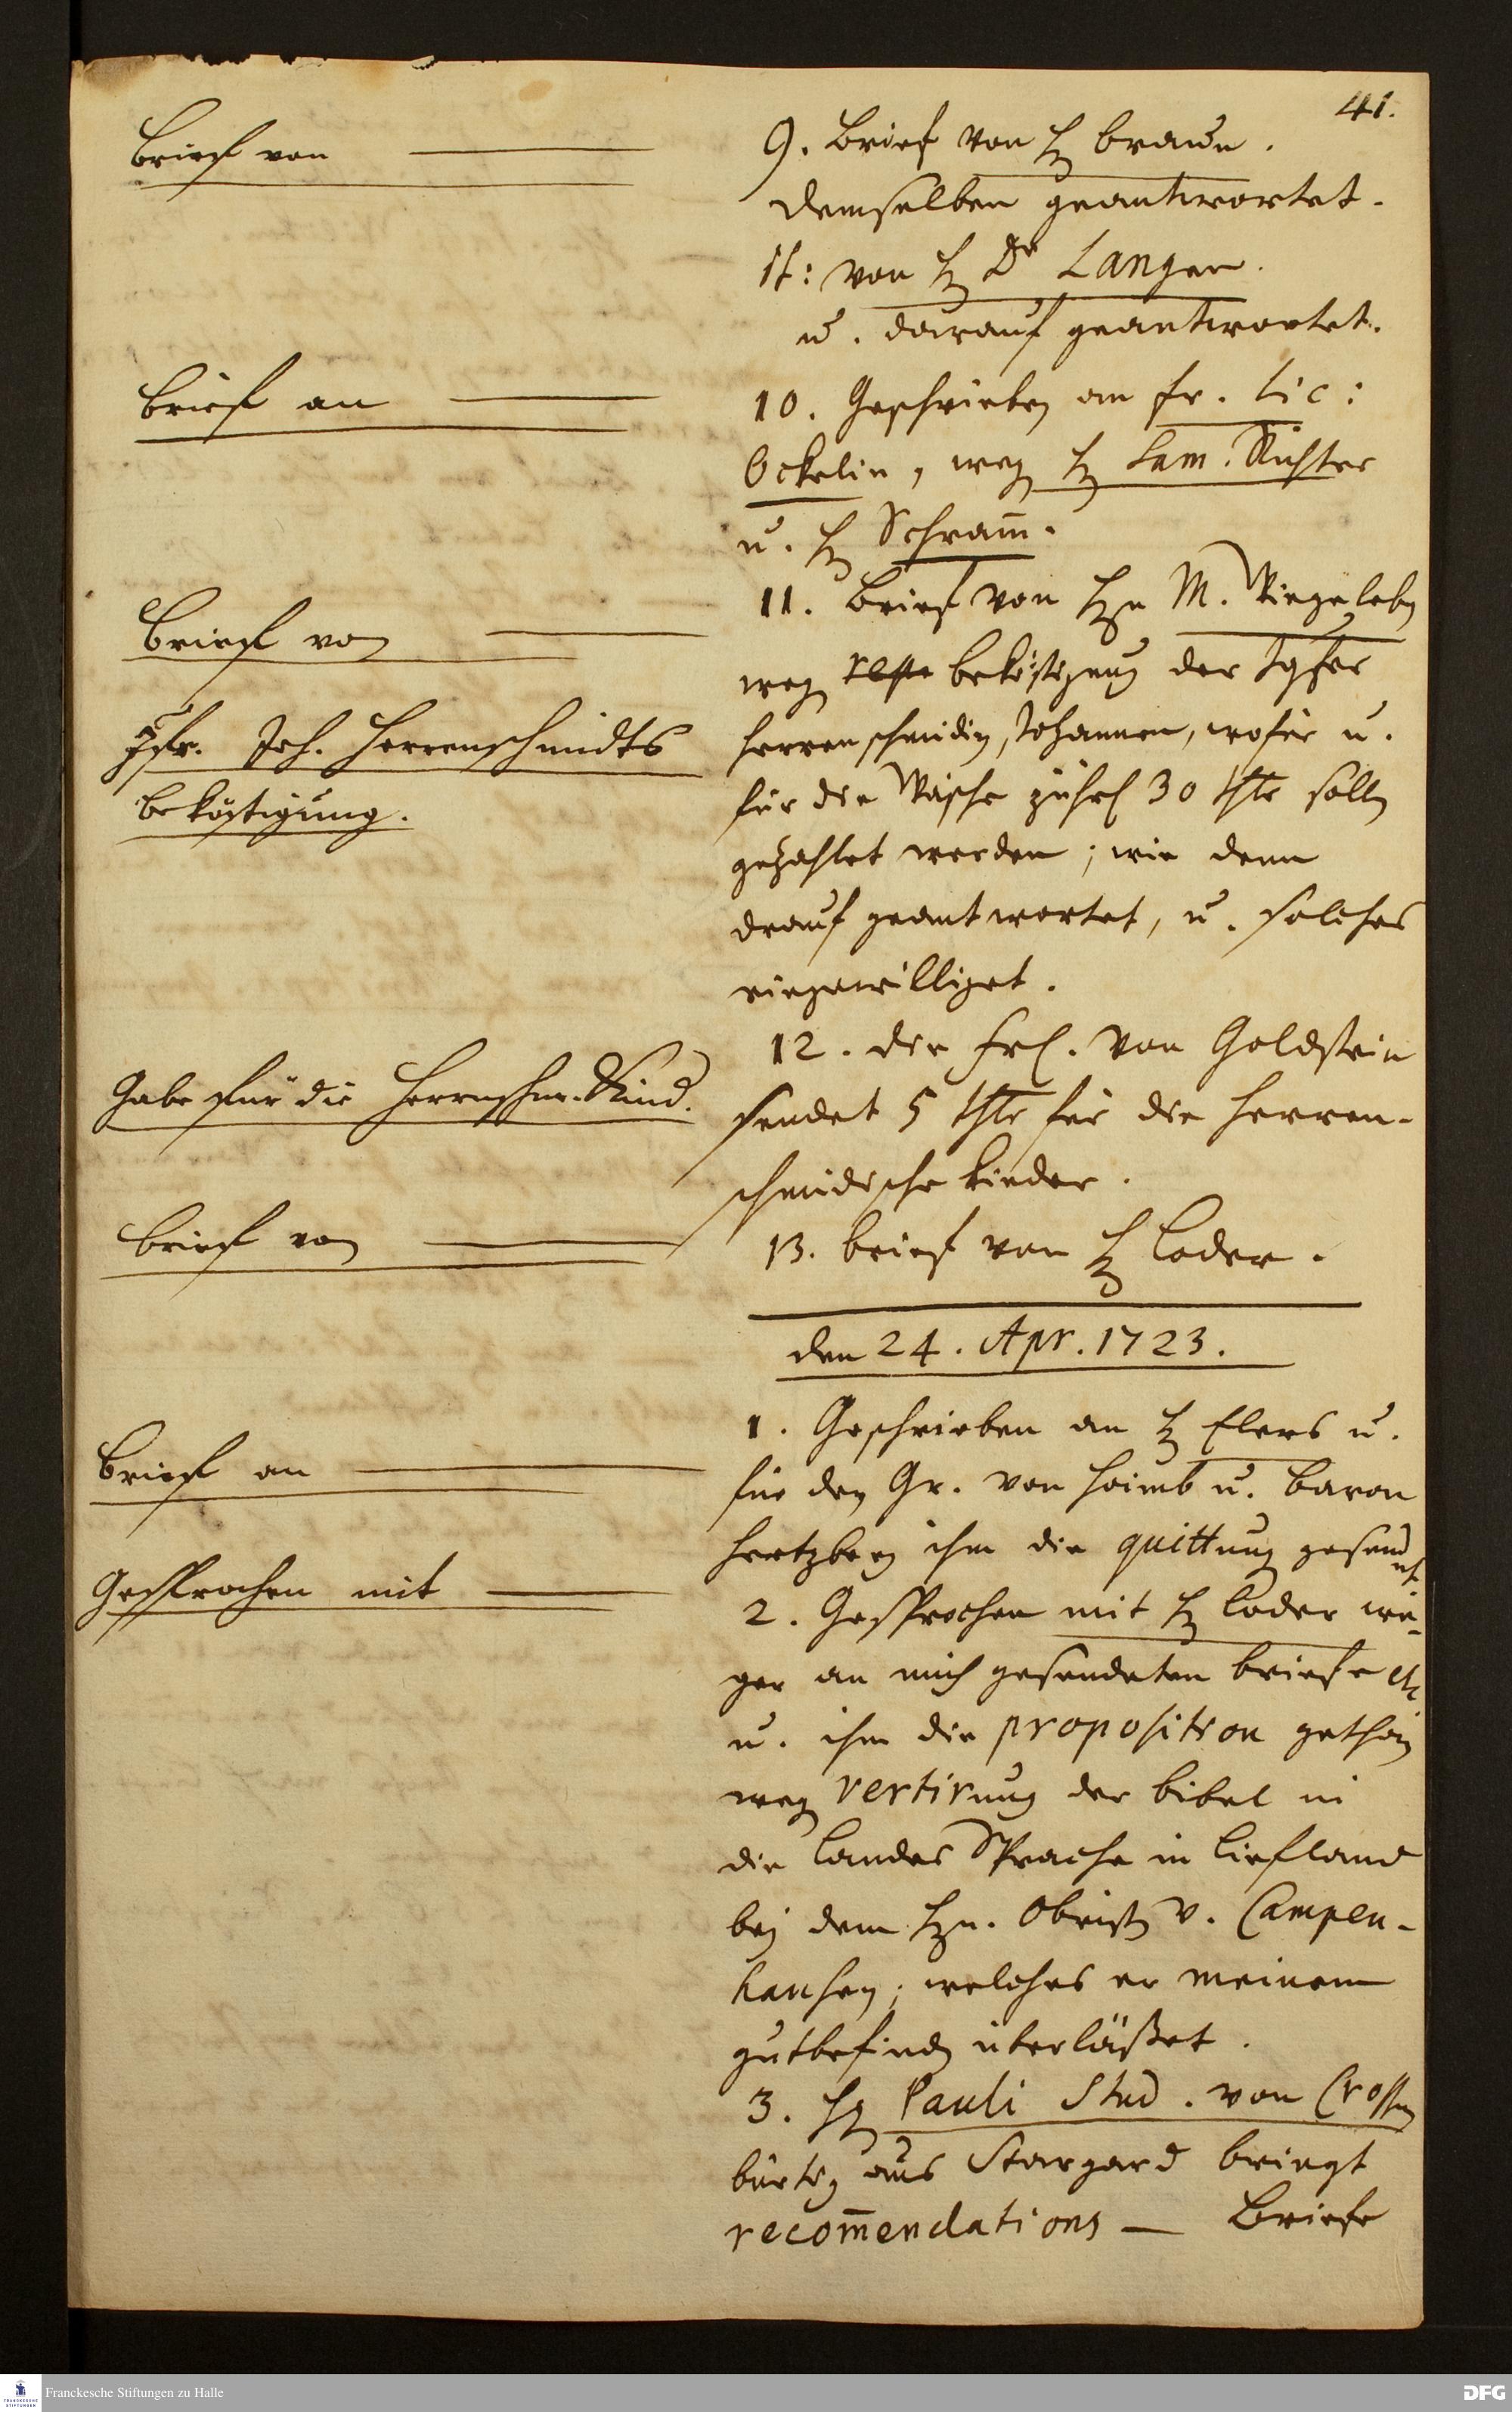 41.
Brief von
9. Brief von H braun.
demselben geantwortet.
it: von H Dr Langen.
u. darauf geantwortet.
Brief an
10. Geschrieben an Fr. Lic:
Ockelin, weg H Sam. Richter
u. H Schram̄.
Brief von
11. Brief von Hn M. Wiegeleb
weg beköstigung der Jgfer
Jfr. Joh. Herrenschmidts
beköstigung.
Herrenschmidin, Johannen, wofür u.
für die Wäsche jährl 30 thlr solln
gezahlet werden; wie denn
drauf geantwortet, u. solches
eingewilliget.
Gabe für die Herrnschm. Kind.
12. die Frl. von Goldstein
sendet 5 thlr für die Herren-
schmidische kinder.
Brief von
13. brief von H Loder.
den 24. Apr. 1723.
Brief an
1. Geschrieben an H Elers u.
für den Gr. von Hoimb u. Baron
Hertzberg ihm die quittung gesendet.
Gesprochen mit
2. Gesprochen mit H Loder we-
gen an mich gesendeten briefe etc
u. ihm die proposition gethan
weg vertirung der bibel in
die Landes Sprache in Liefland
bey dem Hn. Obrist v. Campen-
hausen; welches er meinem
gutbefinden überläßet.
3. H Pauli Stud. von Crossen
bürtig aus Stargard bringt
recom̄endations — Briefe
Franckesche Stiftungen zu Halle
DFG